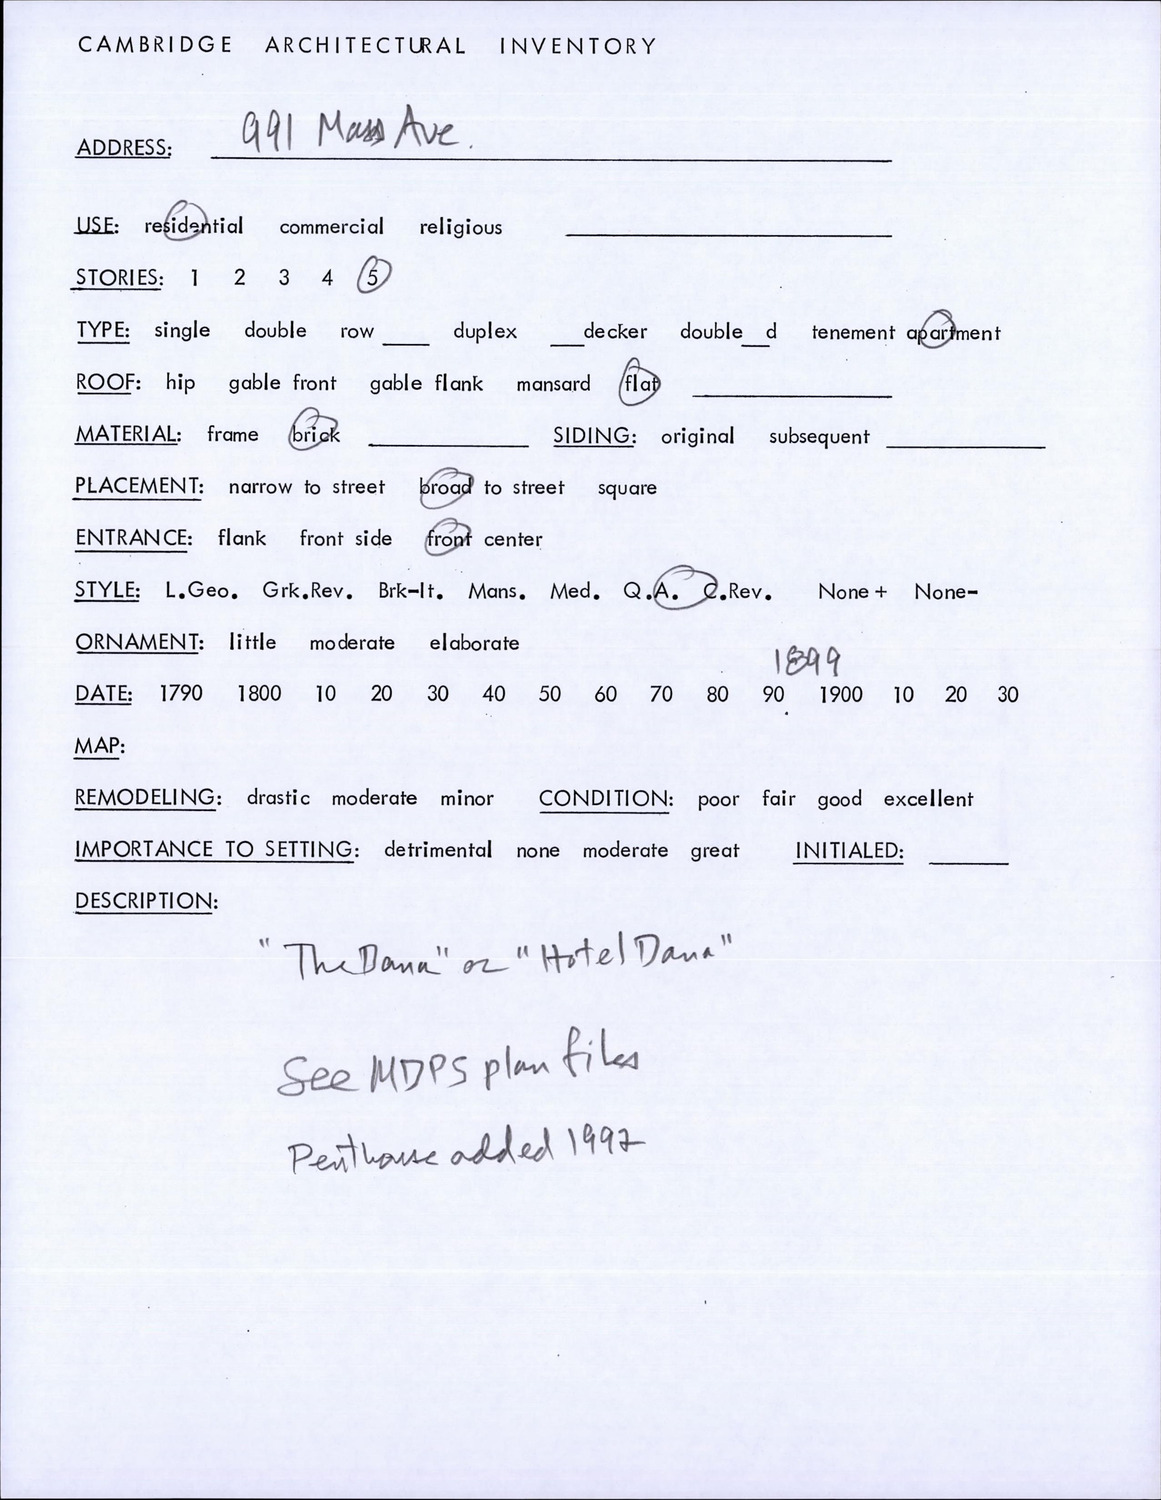 CAMBRIDGE ARCHITECTURAL INVENTORY
ADDRESS: 991 Mass Ave.
USE: residential commercial religious
STORIES: 1 2 3 4 5
TYPE: single double row ____ duplex ____decker double__d tenement apartment
ROOF: hip gable front gable flank mansard flat
MATERIAL: frame brick ____ SIDING: original subsequent ____
PLACEMENT: narrow to street broad to street square
ENTRANCE: flank front side front center
STYLE: L.Geo. Grk.Rev. Brk-It. Mans. Med. Q.A. C.Rev. None+ None-
ORNAMENT: little moderate elaborate
1899
DATE: 1790 1800 10 20 30 40 50 60 70 80 90 1900 10 20 30
MAP:
REMODELING: drastic moderate minor CONDITION: poor fair good excellent
IMPORTANCE TO SETTING: detrimental none moderate great INITIALED: ____
DESCRIPTION:
"The Dana" or "Hotel Dana"
See MDPS plan files
Penthouse added 1997